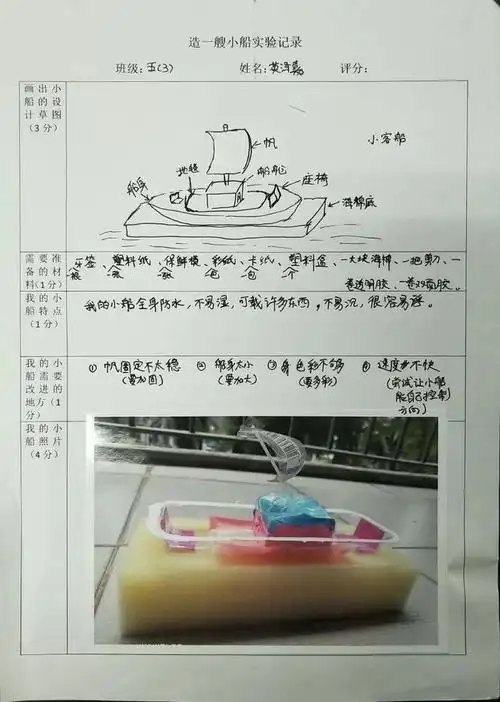 造一艘小船实验记录
班级：五(3) 姓名： 评分：
画出小
船的设
计草图
（3分）
小客船
帆
地毯
船舱
座椅
船身
海绵底
需要准
备的材
料（1分）
牙签、塑料纸、保鲜膜、彩纸、卡纸、塑料盒、一大块海绵、一把剪刀、一
一张 一包 一包 一个 卷透明胶、一卷双面胶。
我的小
船特点
（1分）
我的小船全身防水，不易湿，可载许多东西，不易沉，很容易
我的小
船需要
改进的
地方（1
分）
①帆固定不太稳 ②船身太小 ③身色彩不够 ④速度步不快
（要加固） （要加大） （要多彩） （尝试让小船
能自己控制
方向）
我的小
船照片
（4分）